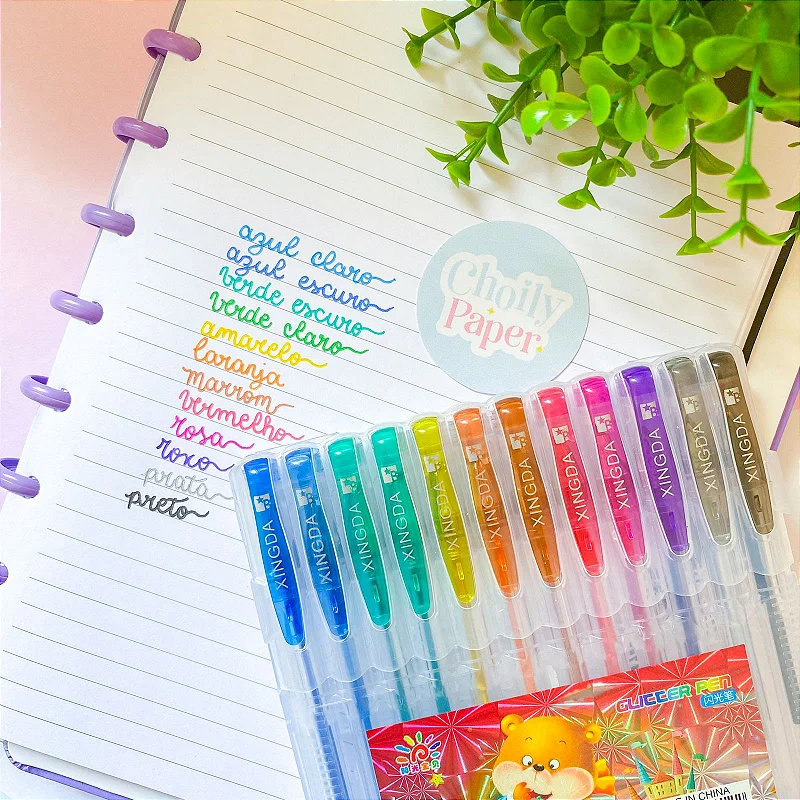 azul claro
azul escuro
verde escuro
verde claro
amarelo
laranja
marrom
vermelho
rosa
roxo
prata
preto
Choily
Paper
XINGDA
XINGDA
XINGDA
XINGDA
XINGDA
XINGDA
XINGDA
XINGDA
XINGDA
XINGDA
XINGDA
XINGDA
GLITTER PEN
闪光笔
IN CHINA